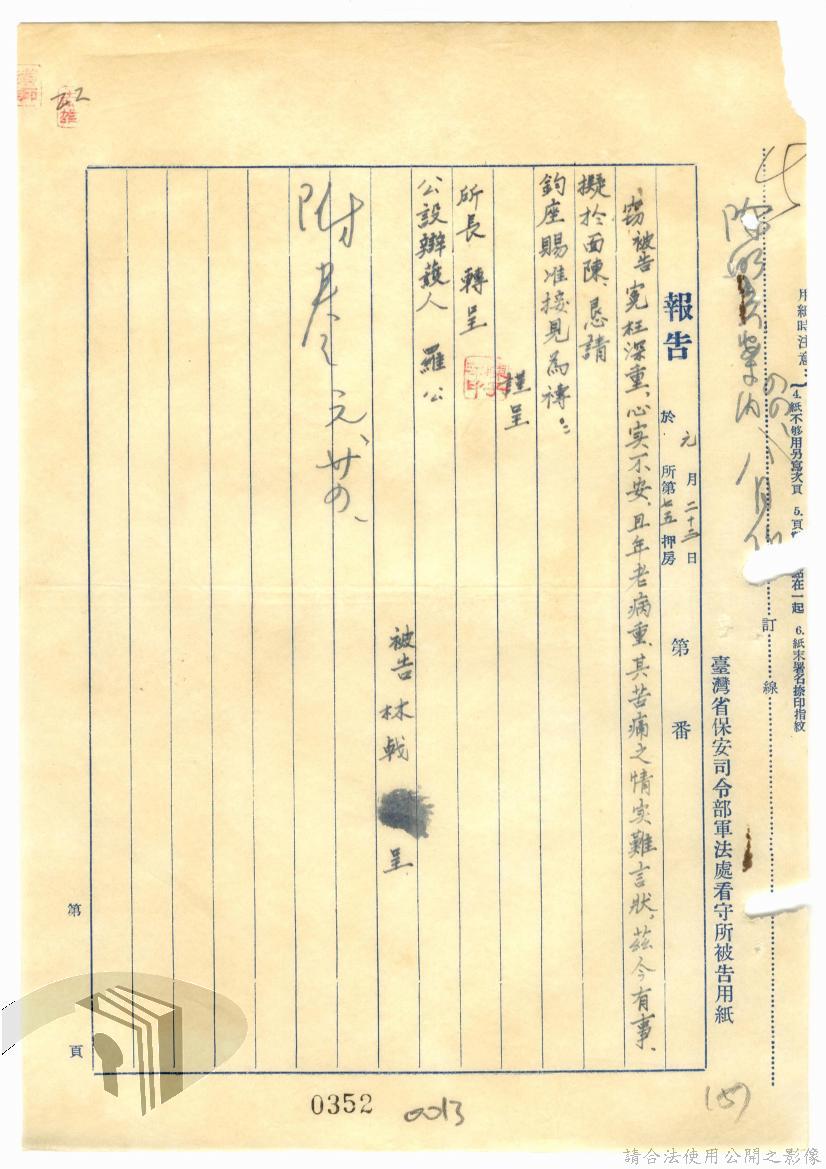 用紙時注意：
4.紙不够用另寫次頁
5.頁
點在一起
6.紙末署名捺印指紋
訂
線
臺灣省保安司令部軍法處看守所被告用紙
報告
於
元月二十三日
所第七五押房
第
番
竊被告冤枉深重、心实不安、且年老病重、其苦痛之情实難言狀、茲今有事、
擬於面陳、恳請
鈞座賜准接見為禱。
謹呈
所長 轉呈
公設辯護人 羅公
被告 林戟 呈
附卷
元、廿四、
第
頁
0352
0013
(57)
請合法使用公開之影像